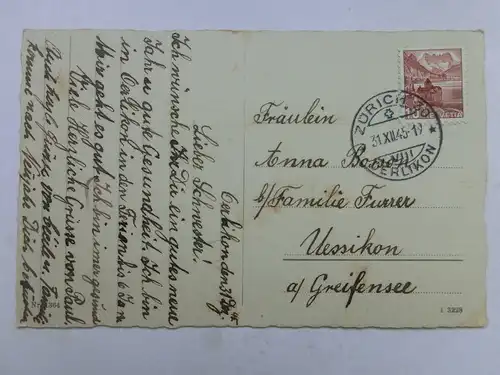 Oerlikon den 31 Dez. 45
Lieber Schwester!
Ich wünsche Dir ein gutes neues
Jahr u. gute Gesundheit. Ich bin
in Oerlikon in den Ferien bis 6 Jan
Mir geht es gut. Ich bin immer gesund
Viele Herzliche Grüsse von Paul.
Auch herzl. Grüsse von Familie
komme nach
Dich
ZÜRICH 50
31.XII.45-19
OERLIKON
HELVETIA
Fräulein
Anna
b/Familie Furrer
Uessikon
a/ Greifensee
I 3228